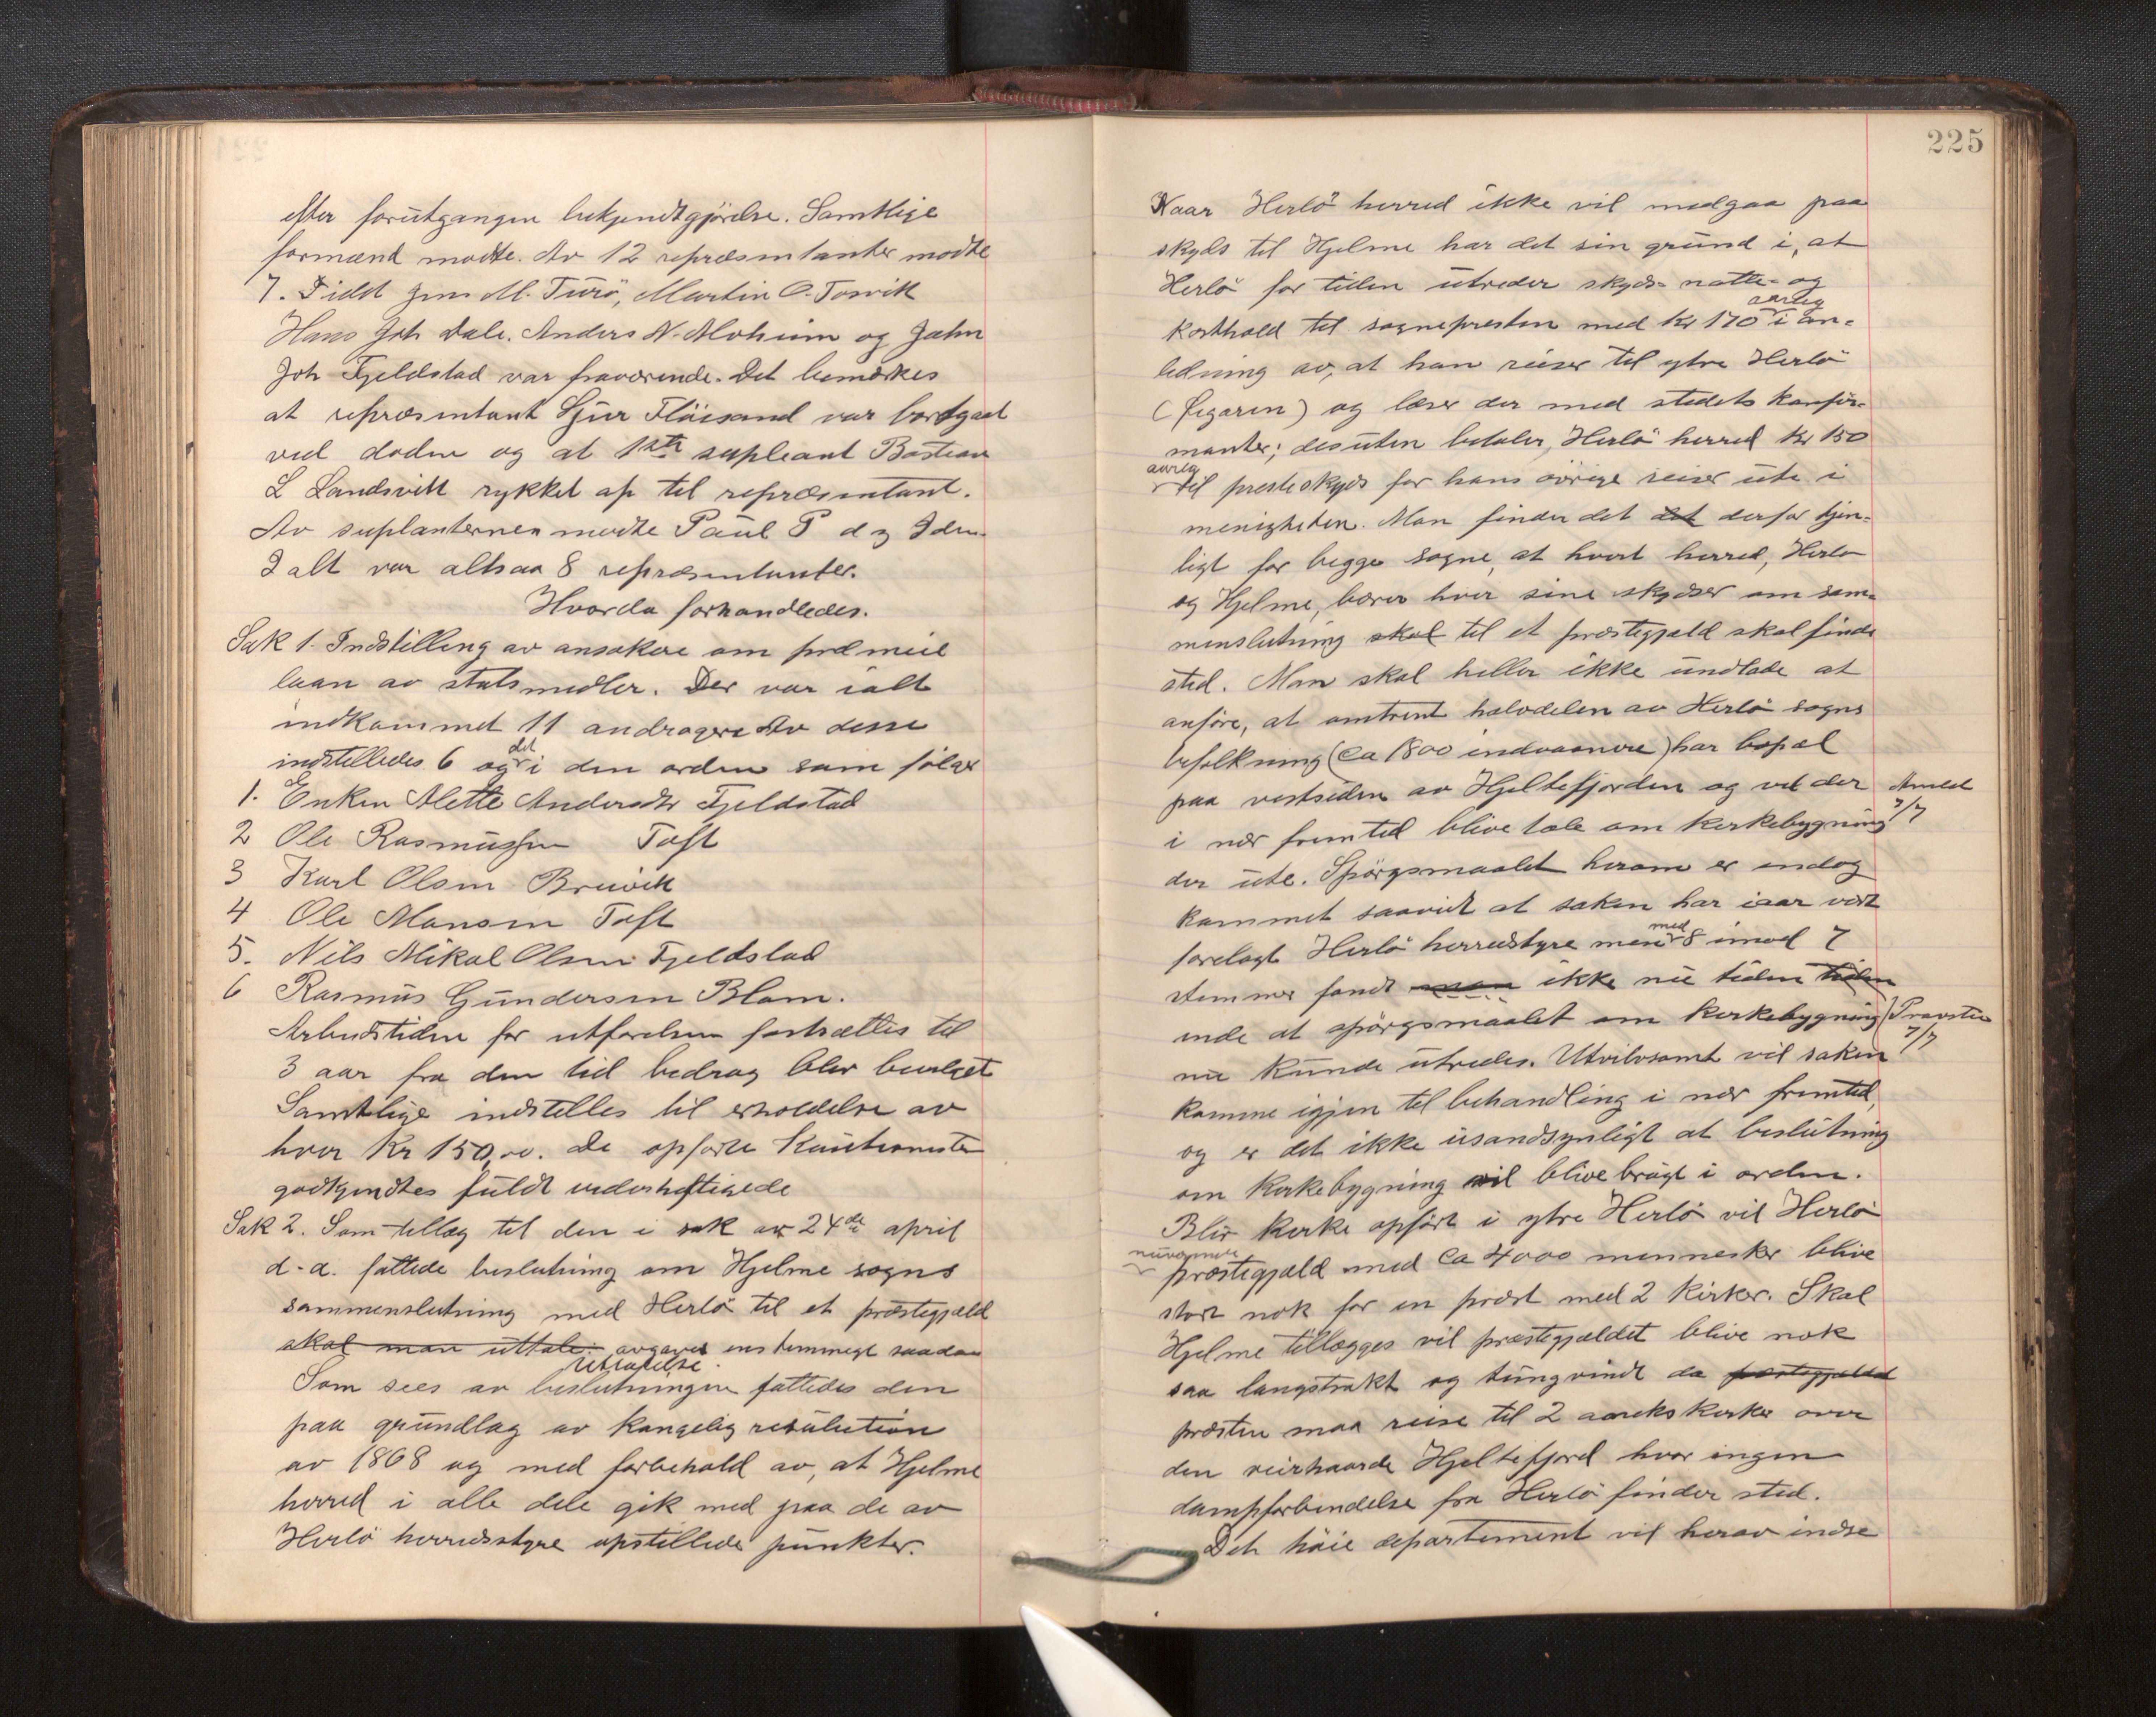 efter forutgangen bekjendtgjörelse. Samtlige
formænd mødte. Av 12 repræsentanter mødte
7. Jens M. Turö, Martin O. Torsvik
Hans Joh Dale. Anders N. og John
Joh Fjeldstad var fraværende. Det bemærkes
at repræsentant Sjur Flöisand var bortgaat
ved döden og at 1ste supleant Bastian
L Landsvik rykket op til repræsentant.
Av suplanternen mødte Paul P
I alt var altsaa 8 repræsentanter.
Hvorda forhandledes.
Sak 1. Indstilling av ansøkere om
laan av statsmidler. Der var ialt
indkommet 11 andragere Av disse
indstilledes 6 og det i den orden som fölger
1. Enken Alette Andersdtr Fjeldstad
2 Ole Rasmussen Toft
3 Karl Olsen Breivik
4 Ole Monsen Toft
5. Nils Mikal Olsen Fjeldstad
6 Rasmus Gundersen Blom.
Arbeidstiden for utförelsen fastsættes til
3 aar fra den tid bedrag blev bevilget
Samtlige indstilles til erholdelse av
hver Kr 150,00. De opförte Kautionister
godkjendtes fuldt vederheftigede
Sak 2. Som tillæg til den i sak av 24de april
d.a. fattede beslutning om Hjelme sogns
sammenslutning med Herlö til et prestegjæld
skal man uttale: avgaves enstemmigt saadan
uttalelse.
Som sees av beslutningen fattedes den
paa grundlag av kongelig resulution
av 1868 og med forbehold av, at Hjelme
herred i alle dele gik med paa de av
Herlö herredsstyre opstillede punkter.
225
Naar Herlö herred ikke vil medgaa paa
skyds til Hjelme har det sin grund i, at
Herlö for tiden utreder skyds- natte- og
aarlig
kosthold til sognepresten med Kr 170 i an-
ledning av, at han reiser til ytre Herlö
(Öegaren) og læser der med stedets konfir-
manter; desuten betaler Herlö herred Kr 150
aarlig
til presteskyds for hans övrige reiser ute i
menigheten. Man finder det det derfor tjen-
ligt for begge sogne, at hvert herred, Herlö
og Hjelme, bærer hver sine skydser om sam-
menslutning skal til et prestegjæld skal finde
sted. Man skal heller ikke undlade at
anföre, at omtrent halvdelen av Herlö sogns
befolkning (ca 1800 indvaanere) har bopæl
paa vestsiden av Hjeltefjorden og vil der
i nær fremtid blive tale om kirkebygning
der ute. Spörgsmaalet herom er endog
kommet saavidt at saken har iaar vært
forelagt Herlö herredstyre men med 8 imod 7
stemmer fandt man ikke nu tiden tiden
inde at spörgsmaalet om kirkebygning
nu kunde utredes. Utvilsomt vil saken
komme igjen til behandling i nær fremtid,
og er det ikke usandsynligt at beslutning
om kirkebygning vil blive bragt i orden.
Blir kirke opfört i ytre Herlö vil Herlö
nuværende
prestegjæld med ca 4000 mennesker blive
stort nok for en prest med 2 kirker. Skal
Hjelme tillægges vil prestegjældet blive nok
saa langstrakt og tungvindt da prestegjældet
presten maa reise til 2 annekskirker over
den veirhaarde Hjeltefjord hvor ingen
dampforbindelse fra Herlö finder sted.
Det höie departement vil herav indse
Anmeld
7/7
Provsten
7/7